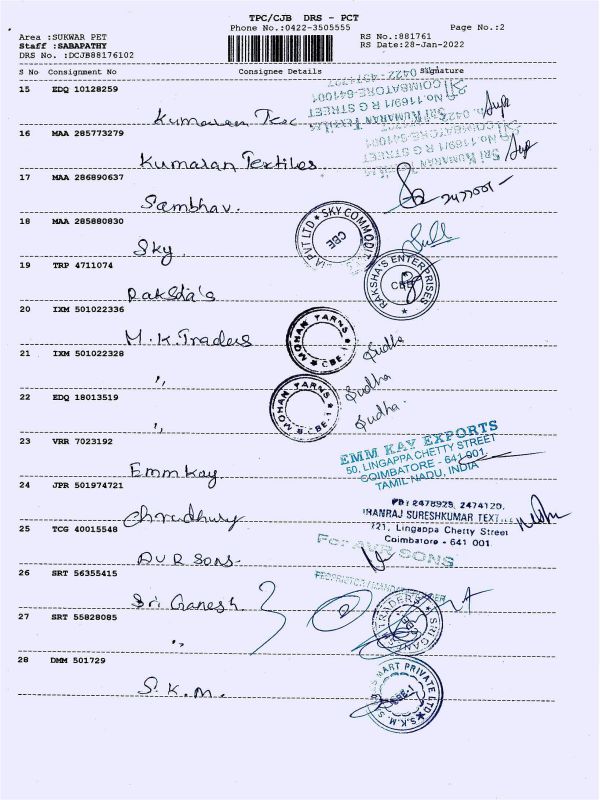 TPC/CJB DRS - PCT
Phone No.:0422-3505555 Page No.:2
Area :SUKWAR PET RS No.:881761
Staff :SABAPATHY RS Date:28-Jan-2022
DRS No. :DCJB88176102
S No Consignment No Consignee Details Signature
15 EDQ 10128259
Kumaran Tex
16 MAA 285773279
SRI KUMARAN TEXTILES
No.1169/1 R G STREET
COIMBATORE-641001
Kumaran Textiles
17 MAA 286890637
Sambhav.
18 MAA 285880830
SKY COMMODITIES
PVT LTD
CBE
Sky.
19 TRP 4711074
RAKSHA'S ENTERPRISES
CBE
Raksha's
20 IXM 501022336
MOHAN YARNS
CBE-1
M.K.Traders
Sudha
21 IXM 501022328
"
Sudha
22 EDQ 18013519
MOHAN YARNS
CBE-1
Sudha.
"
23 VRR 7023192
EMM KAY EXPORTS
50, LINGAPPA CHETTY STREET
COIMBATORE - 641 001.
TAMIL NADU, INDIA
Emm Kay
24 JPR 501974721
2478925, 2474120.
DHANRAJ SURESHKUMAR TEXT...
721, Lingappa Chetty Street
Coimbatore - 641 001
Chradhury
25 TCG 40015548
For AVR SONS
AVR Sons-
26 SRT 56355415
Sri Ganesh
27 SRT 55828085
TRADERS
SRI GANESH
"
28 DMM 501729
S.K.M. SMART PRIVATE LTD
CBE-1
S.K.M.